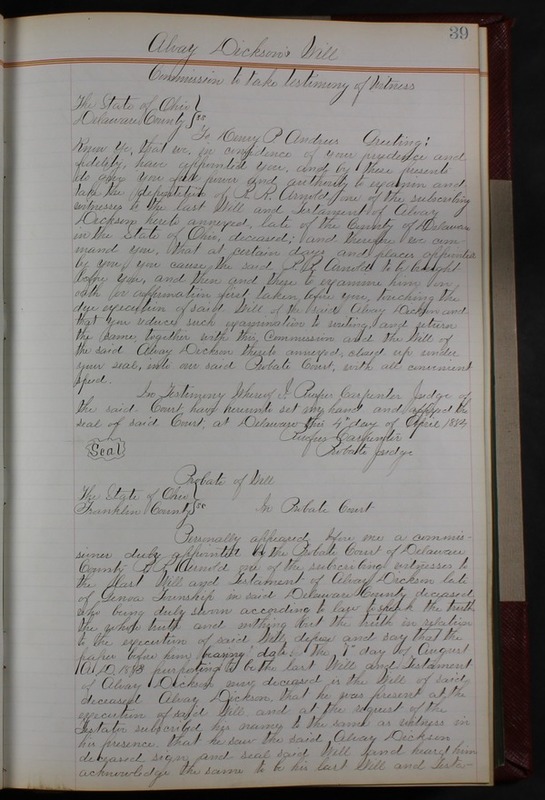 39
Alvay Dickson's Will
Commission to take testimony of Witness
The State of Ohio }
Delaware County } ss
To Henry P. Andrus Greeting:
Know Ye, That we, in confidence of your prudence and
fidelity, have appointed you, and by these presents
do give you full power and authority to examin and
take the deposition of R. Arnold, one of the subscribing
witnesses to the last Will and Testament of Alvay
Dickson hereto annexed, late of the County of Delaware
in the State of Ohio, deceased; and therefore we com-
mand you, that at certain days and places appointed
by you, you cause the said R. Arnold to be brought
before you, and then and there to examine him on
oath or affirmation first taken before you, touching the
due execution of said Will of the said Alvay Dickson and
that you reduce such examination to writing, and return
the same, together with this Commission and the Will of
the said Alvay Dickson thereto annexed, closed up under
your seal, unto our said Probate Court, with all convenient
speed.
In Testimony Whereof I, Rufus Carpenter Judge of
the said Court, have hereunto set my hand and affixed the
seal of said Court, at Delaware this 4" day of April 1884
Rufus Carpenter
Seal
Probate Judge
Probate of Will
The State of Ohio }
Franklin County } ss In Probate Court
Personally appeared before me a commis-
sioner duly appointed by the Probate Court of Delaware
County R. Arnold one of the subscribing witnesses to
the last Will and Testament of Alvay Dickson late
of Genoa Township in said Delaware County deceased,
who being duly sworn according to law to speak the truth
the whole truth and nothing but the truth in relation
to the execution of said Will, depose and say that the
paper before him bearing date the day of August
A.D. 1883 purporting to be the last Will and Testament
of Alvay Dickson now deceased is the Will of said
deceased Alvay Dickson, that he was present at the
execution of said Will and at the request of the
testator subscribed his name to the same as witness in
his presence. that he saw the said Alvay Dickson
deceased sign and seal said Will and heard him
acknowledge the same to be his last Will and testa-